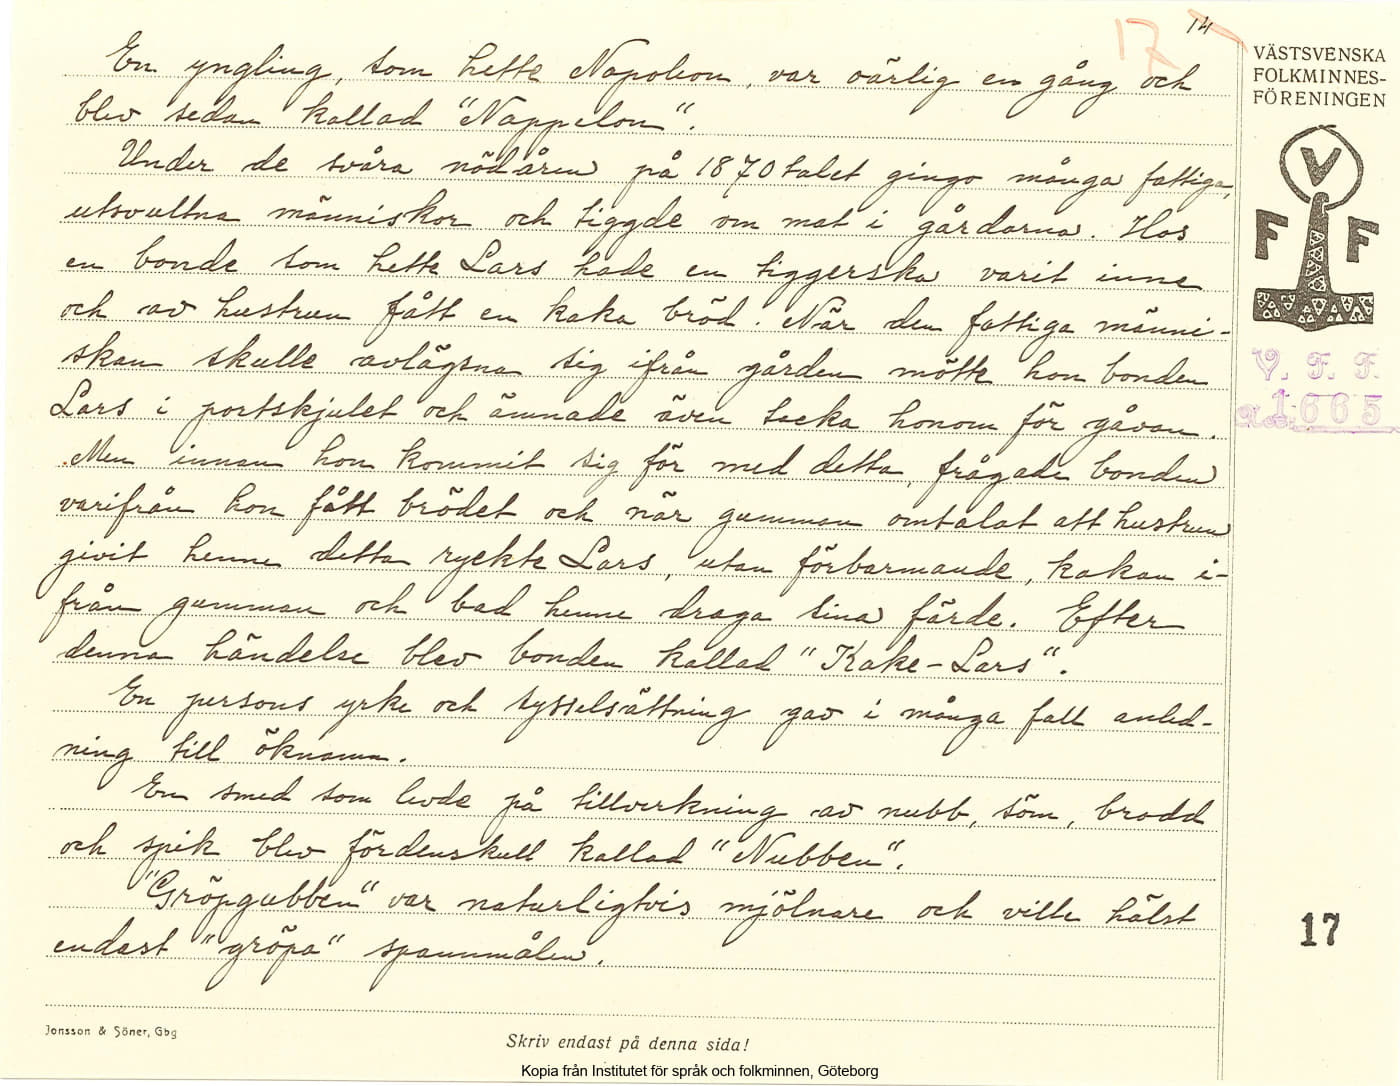 14
17
En yngling, som hette Napoleon, var oärlig en gång och
blev sedan kallad "Nappelon".
Under de svåra nödåren på 1870talet gingo många fattiga,
utsvultna människor och tiggde om mat i gårdarna. Hos
en bonde som hette Lars hade en tiggerska varit inne
och av hustrun fått en kaka bröd. När den fattiga männi-
skan skulle avlägsna sig ifrån gården mötte hon bonden
Lars i portskjulet och ämnade även tacka honom för gåvan.
Men innan hon kommit sig för med detta, frågade bonden
varifrån hon fått brödet och när gumman omtalat att hustrun
givit henne detta ryckte Lars, utan förbarmande, kakan i-
från gumman och bad henne draga sina färde. Efter
denna händelse blev bonden kallad "Kake-Lars".
En persons yrke och sysselsättning gav i många fall anled-
ning till öknamn.
En smed som levde på tillverkning av nubb, söm, brodd
och spik blev fördenskull kallad "Nubben".
"Gröpgubben" var naturligtvis mjölnare och ville hälst
endast "gröpa" spannmålen.
VÄSTSVENSKA
FOLKMINNES-
FÖRENINGEN
V
F F
V. F. F.
1665
17
Jonsson & Söner, Gbg
Skriv endast på denna sida!
Kopia från Institutet för språk och folkminnen, Göteborg